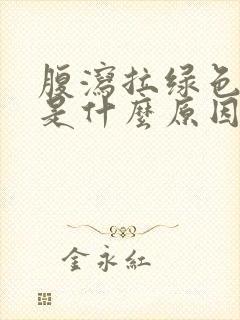 腹瀉拉绿色
是什麼原因
金永紅